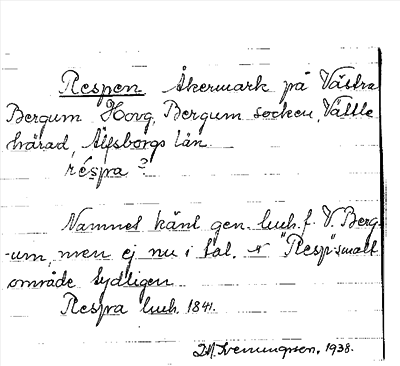 Respen Åkermark på Västra
Bergum Hovg, Bergum socken, Vättle
härad, Älfsborgs län.
réspa?
Namnet känt gen. luh. f. V. Berg-
um, men ej nu i tal. "Resp" smalt
område tydligen.
Respra luh. 1841.
1938.